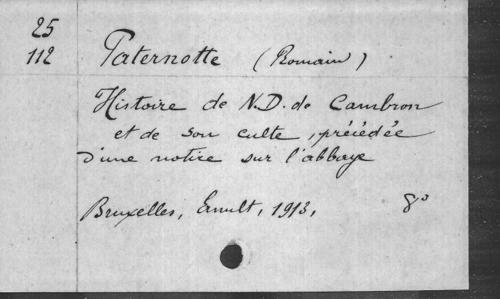 25
112
Paternotte (Romain)
Histoire de N.D. de Cambron
et de son culte, précédée
d'une notice sur l'abbaye
Bruxelles, Ernult, 1913, 8°